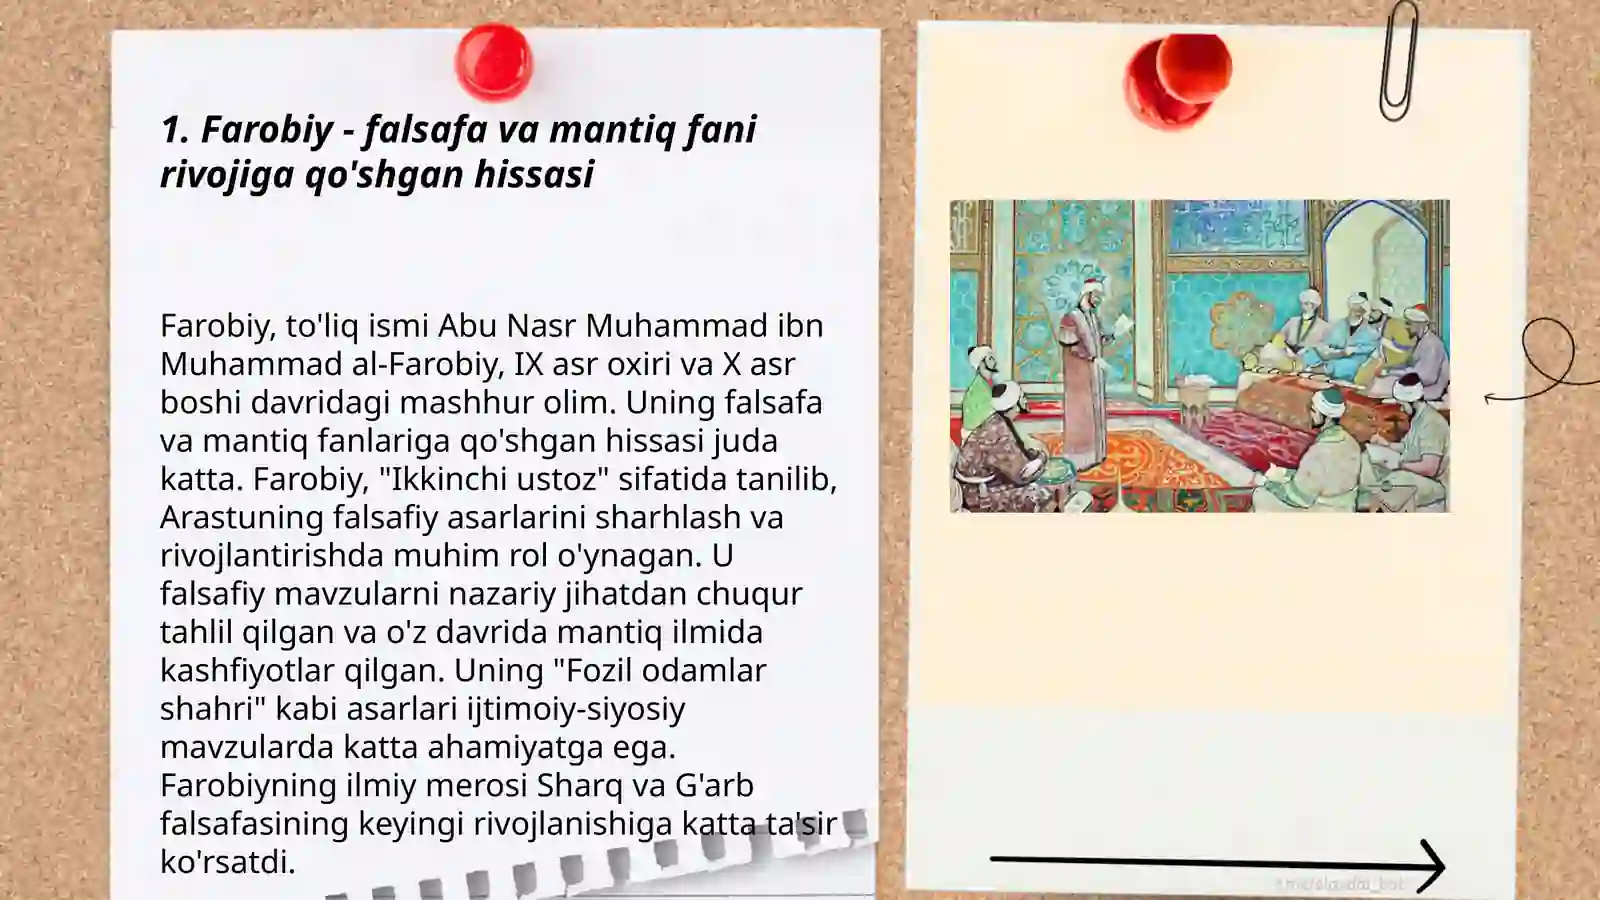 1. Farobiy - falsafa va mantiq fani
rivojiga qo'shgan hissasi
Farobiy, to'liq ismi Abu Nasr Muhammad ibn
Muhammad al-Farobiy, IX asr oxiri va X asr
boshi davridagi mashhur olim. Uning falsafa
va mantiq fanlariga qo'shgan hissasi juda
katta. Farobiy, "Ikkinchi ustoz" sifatida tanilib,
Arastuning falsafiy asarlarini sharhlash va
rivojlantirishda muhim rol o'ynagan. U
falsafiy mavzularni nazariy jihatdan chuqur
tahlil qilgan va o'z davrida mantiq ilmida
kashfiyotlar qilgan. Uning "Fozil odamlar
shahri" kabi asarlari ijtimoiy-siyosiy
mavzularda katta ahamiyatga ega.
Farobiyning ilmiy merosi Sharq va G'arb
falsafasining keyingi rivojlanishiga katta ta'sir
ko'rsatdi.